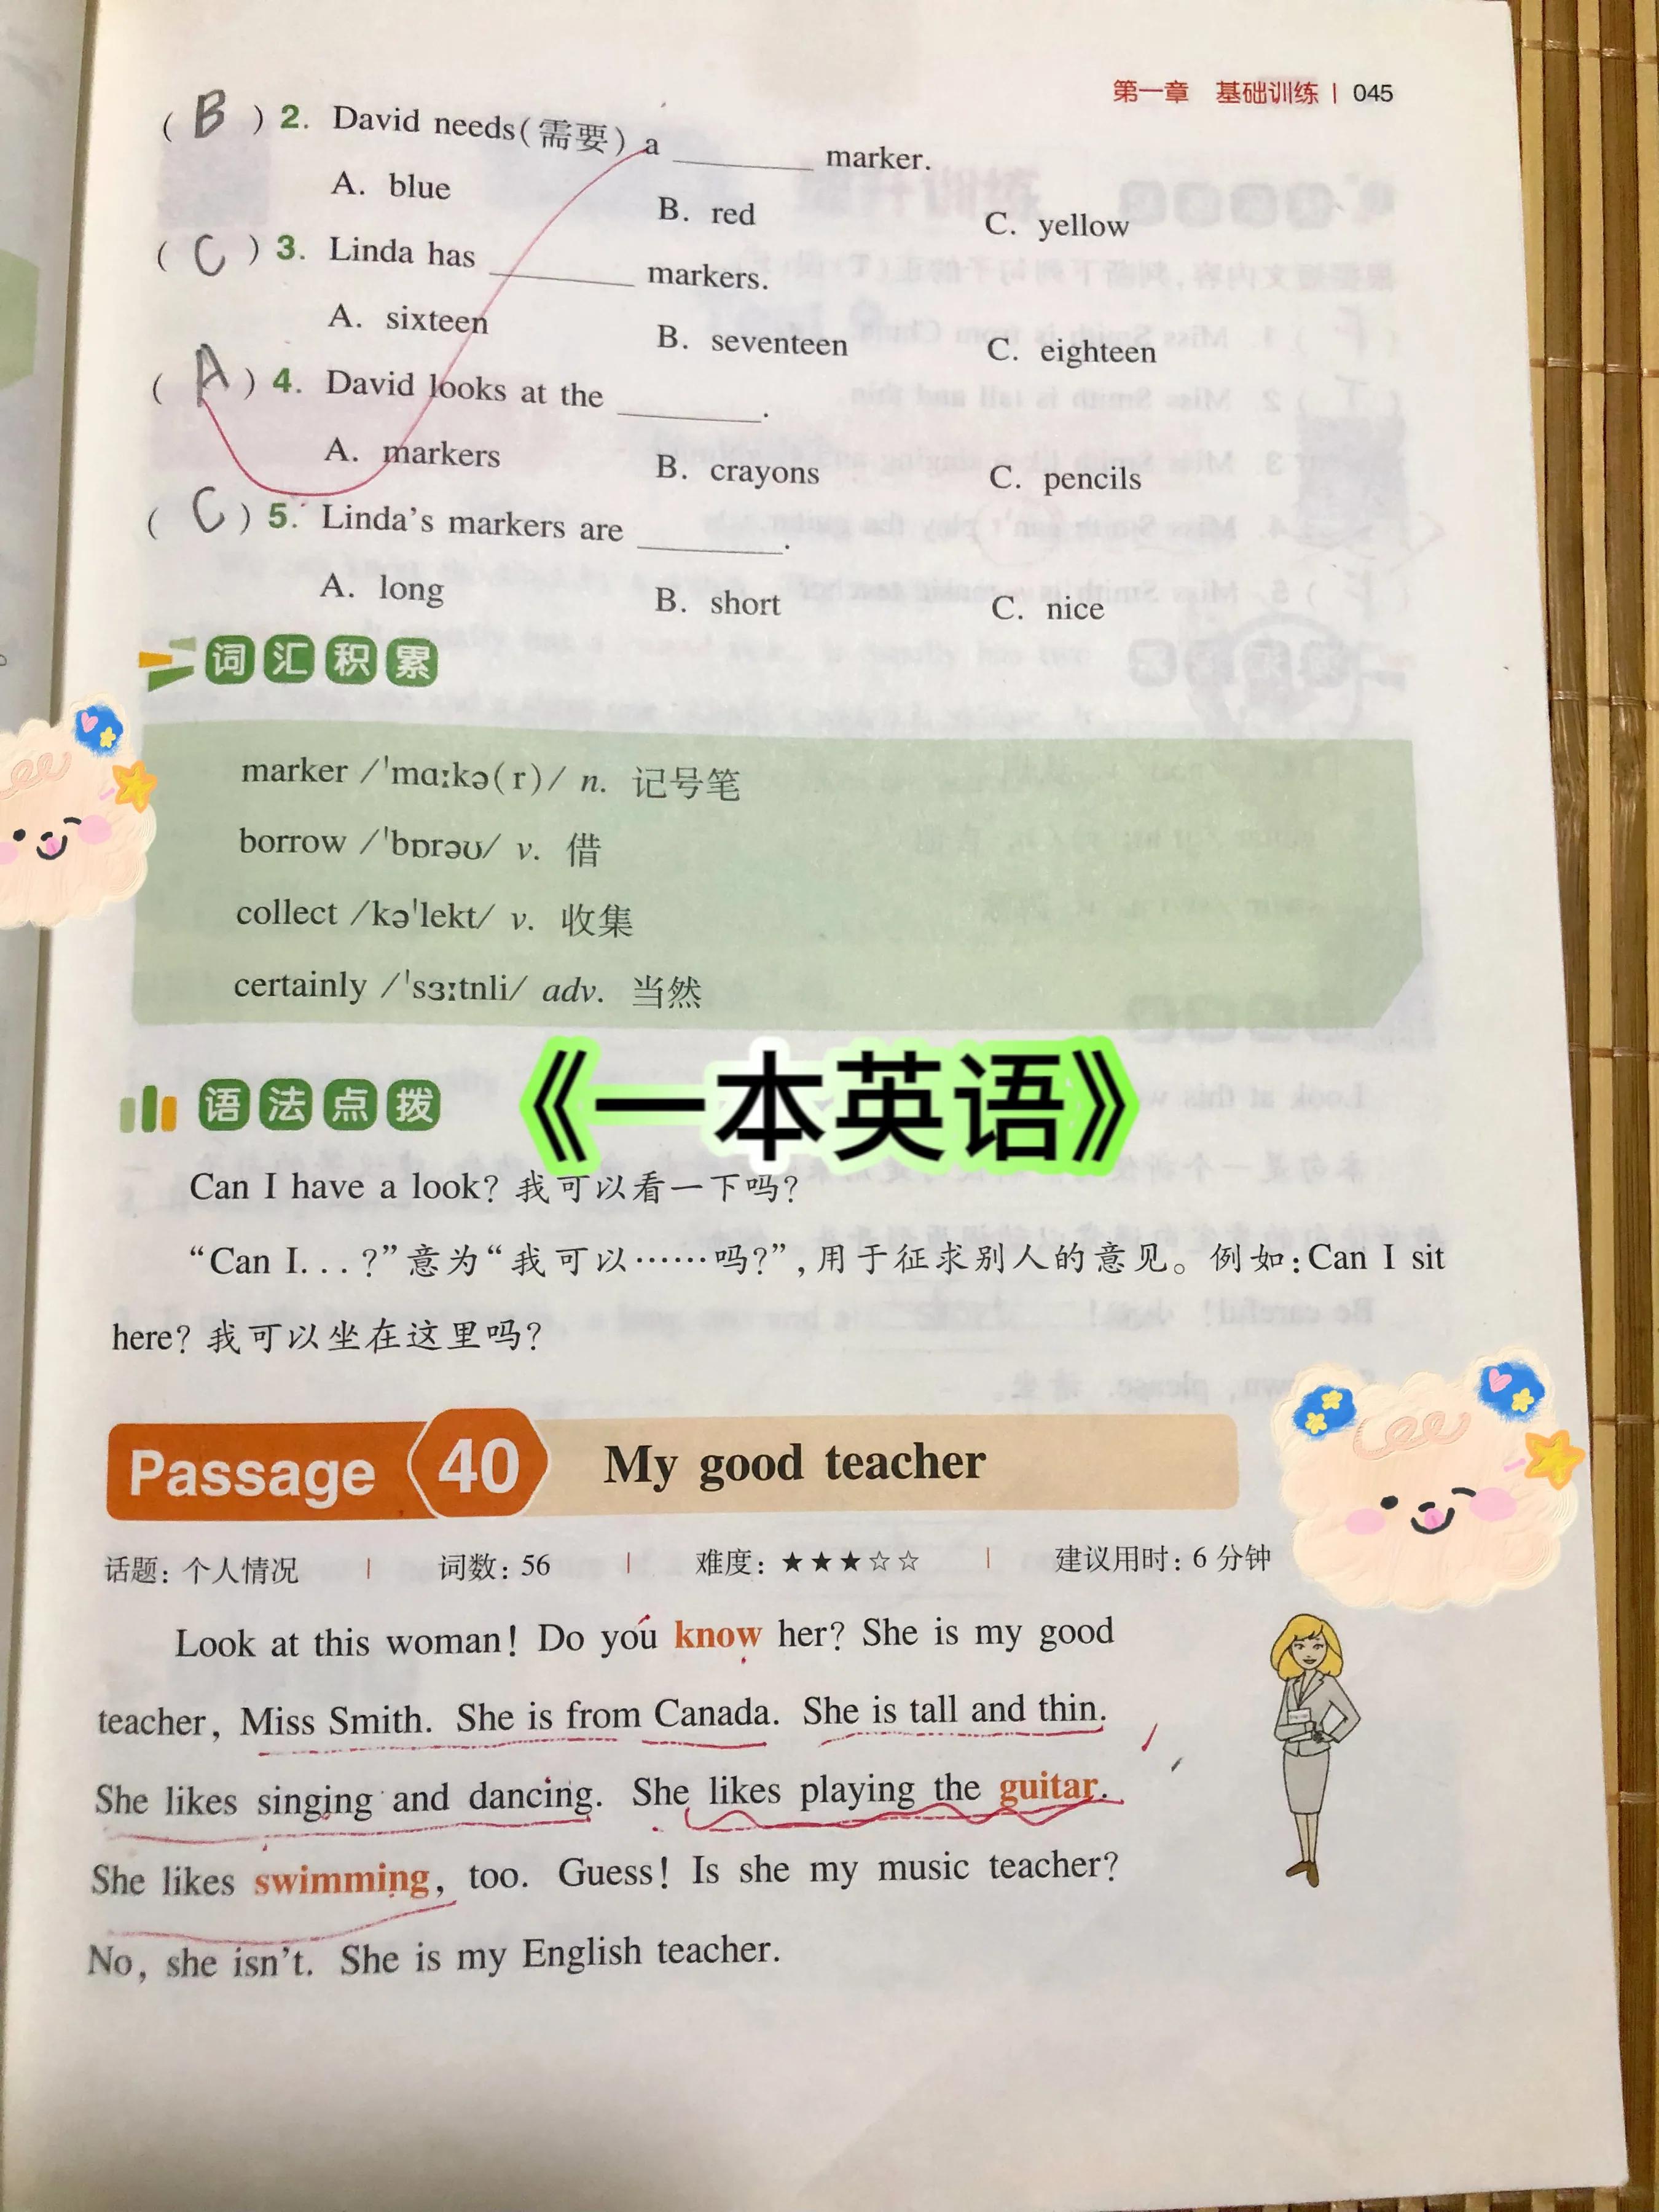 第一章 基础训练 | 045
( B ) 2. David needs(需要) a ______ marker.
A. blue B. red C. yellow
( C ) 3. Linda has ______ markers.
A. sixteen B. seventeen C. eighteen
( A ) 4. David looks at the ______.
A. markers B. crayons C. pencils
( C ) 5. Linda's markers are ______.
A. long B. short C. nice
词汇积累
marker /ˈmɑːkə(r)/ n. 记号笔
borrow /ˈbɒrəʊ/ v. 借
collect /kəˈlekt/ v. 收集
certainly /ˈsɜːtnli/ adv. 当然
语法点拨
《一本英语》
Can I have a look? 我可以看一下吗?
“Can I...?”意为“我可以……吗?”,用于征求别人的意见。例如:Can I sit
here? 我可以坐在这里吗?
Passage 40 My good teacher
话题: 个人情况 | 词数: 56 | 难度: ★★★☆☆ | 建议用时: 6 分钟
Look at this woman! Do you know her? She is my good
teacher, Miss Smith. She is from Canada. She is tall and thin.
She likes singing and dancing. She likes playing the guitar.
She likes swimming, too. Guess! Is she my music teacher?
No, she isn't. She is my English teacher.